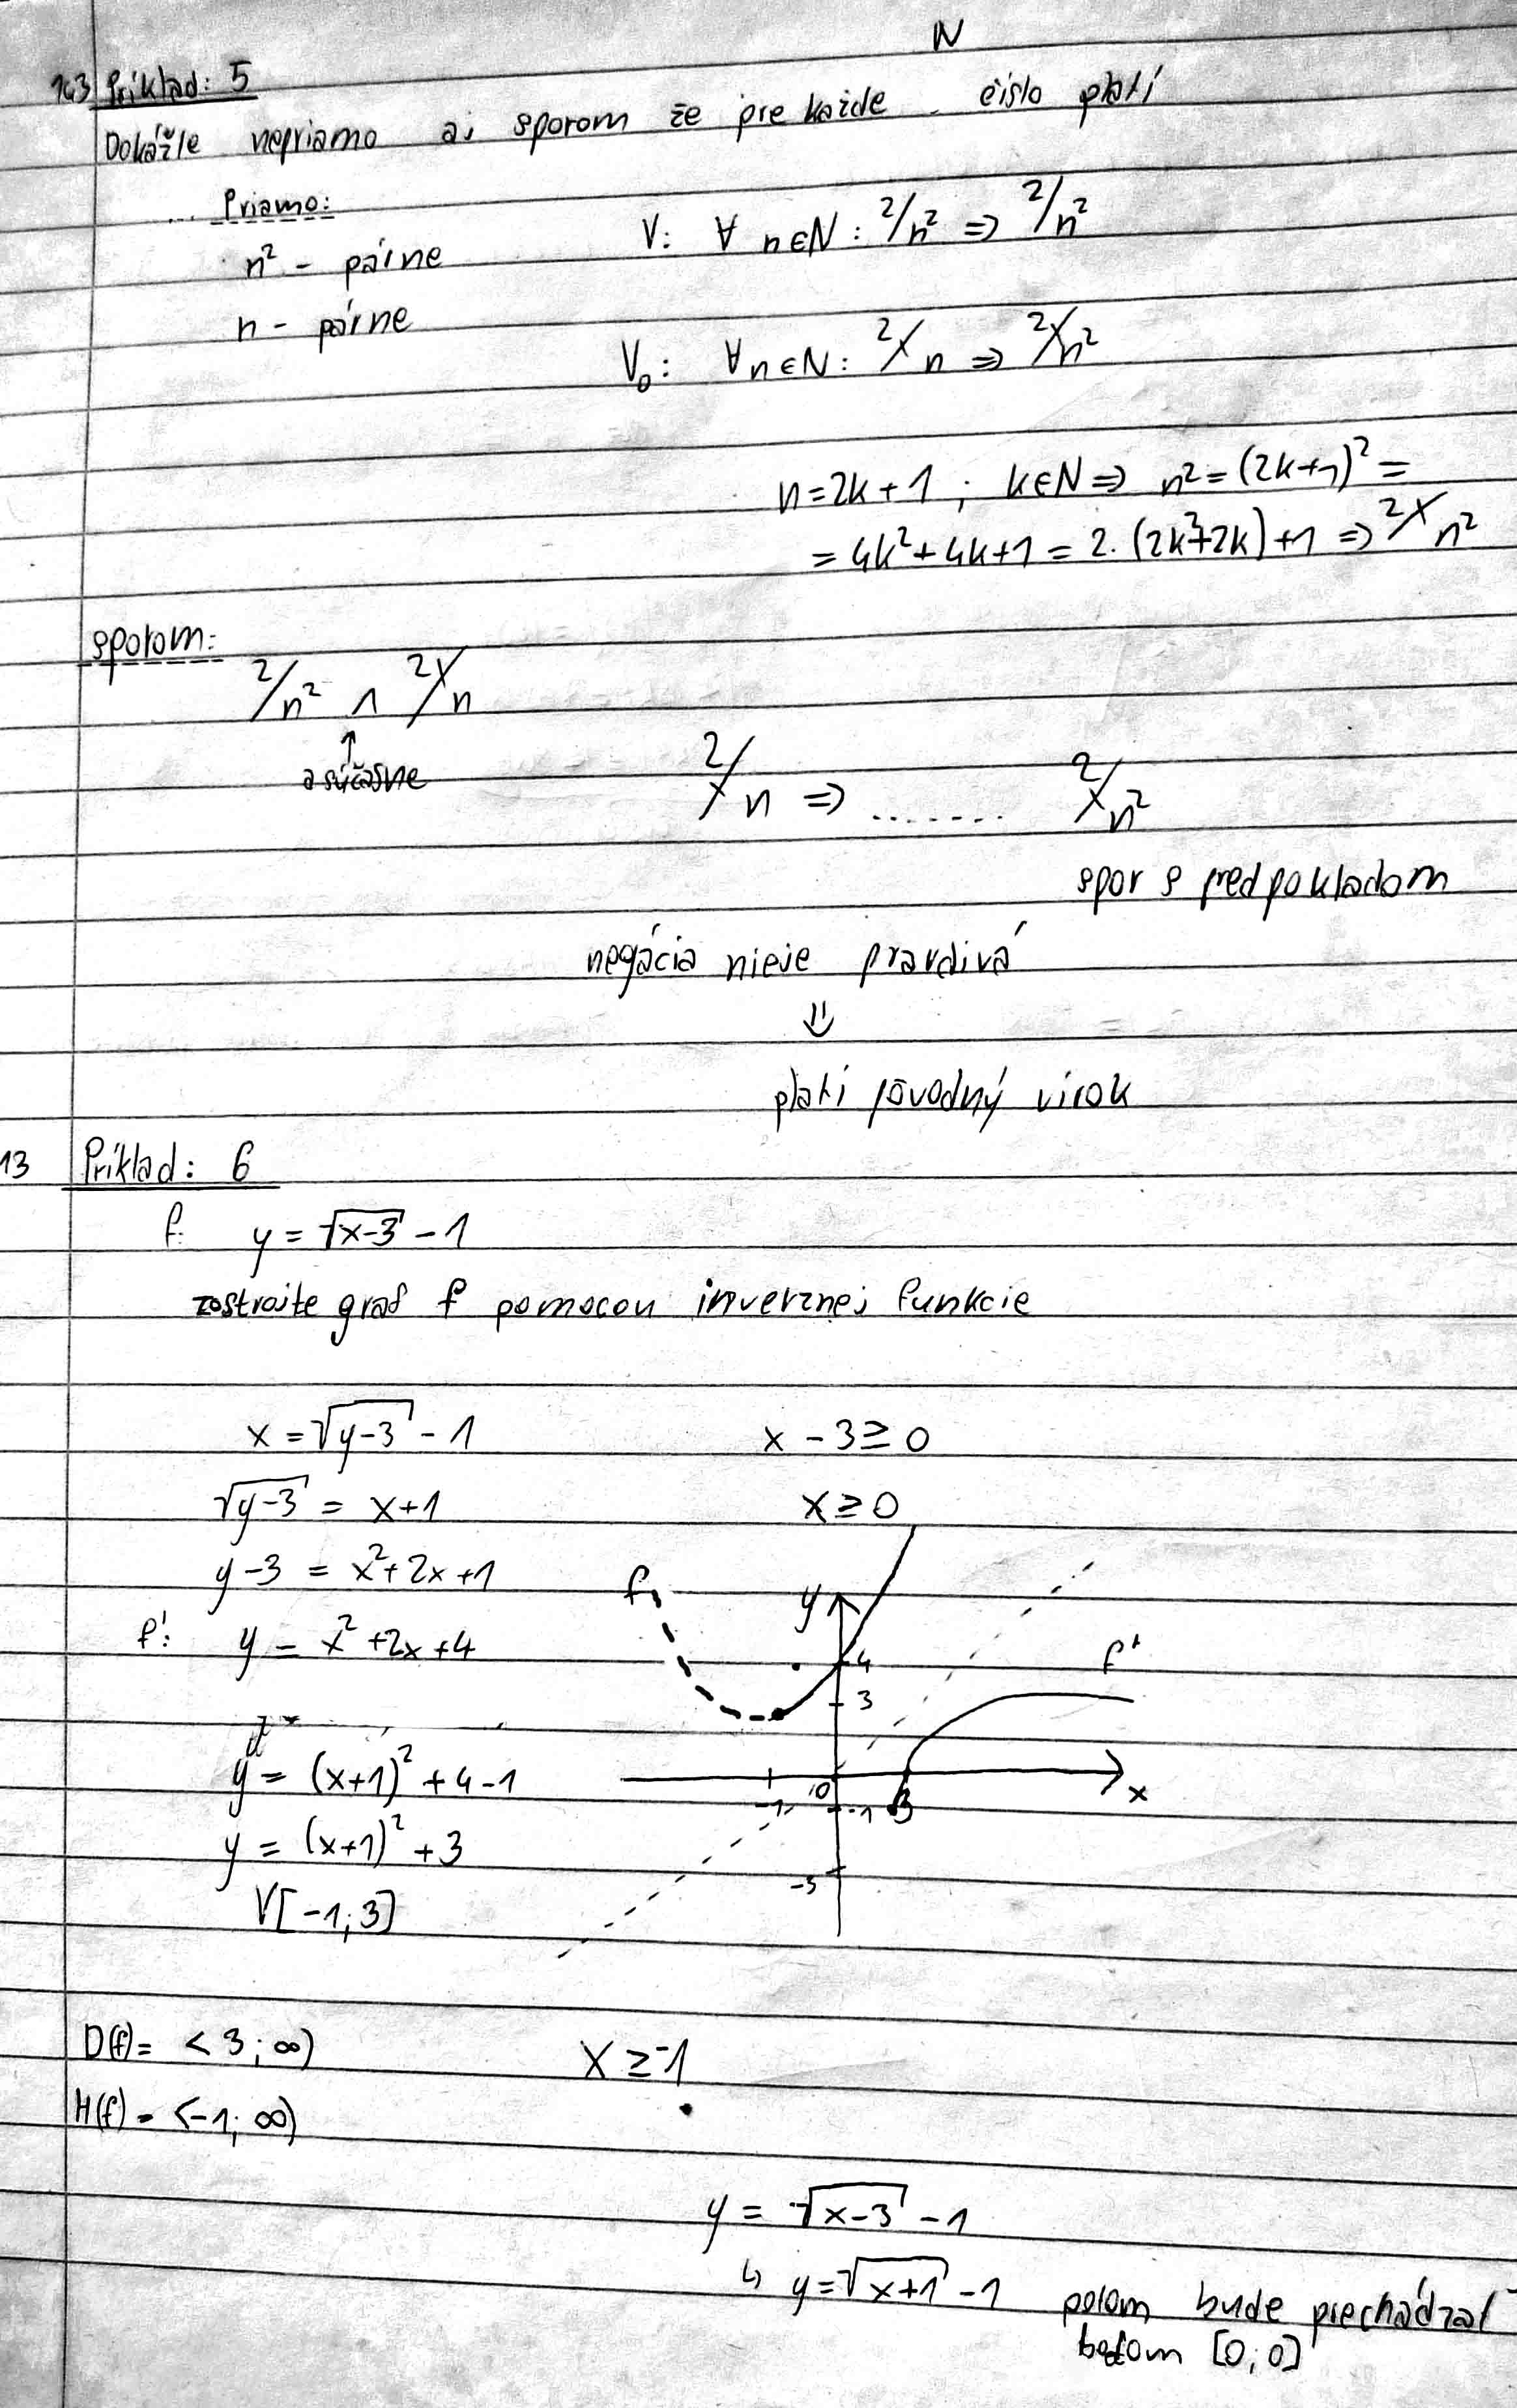 N
143 Príklad: 5
Dokážte nepriamo aj sporom že pre každe číslo platí
Priamo:
n² - párne
V: ∀ n∈N: 2/n² ⇒ 2/n²
n - párne
V₀: ∀n∈N: 2∤n ⇒ 2∤n²
n=2k+1 ; k∈N ⇒ n²=(2k+1)²=
= 4k²+4k+1 = 2.(2k²+2k)+1 ⇒ 2∤n²
sporom:
2/n² ∧ 2∤n
↑
a súčasne
2∤n ⇒ ........ 2∤n²
spor s predpokladom
negácia nieje pravdivá
⇓
platí pôvodný virok
13 Príklad: 6
f: y = √(x-3) - 1
zostrojte graf f pomocou inverznej funkcie
x = √(y-3) - 1 x - 3 ≥ 0
√(y-3) = x+1 x ≥ 0
y-3 = x²+2x+1
f': y = x²+2x+4
f y 4 3 f'
-1 0 -1 3 x
-3
y = (x+1)² + 4-1
y = (x+1)² + 3
V[-1;3]
D(f)= <3;∞) x ≥ -1
H(f) = <-1;∞)
y = √(x-3) - 1
↳ y=√(x+1) - 1 potom bude prechádzať
bodom [0;0]